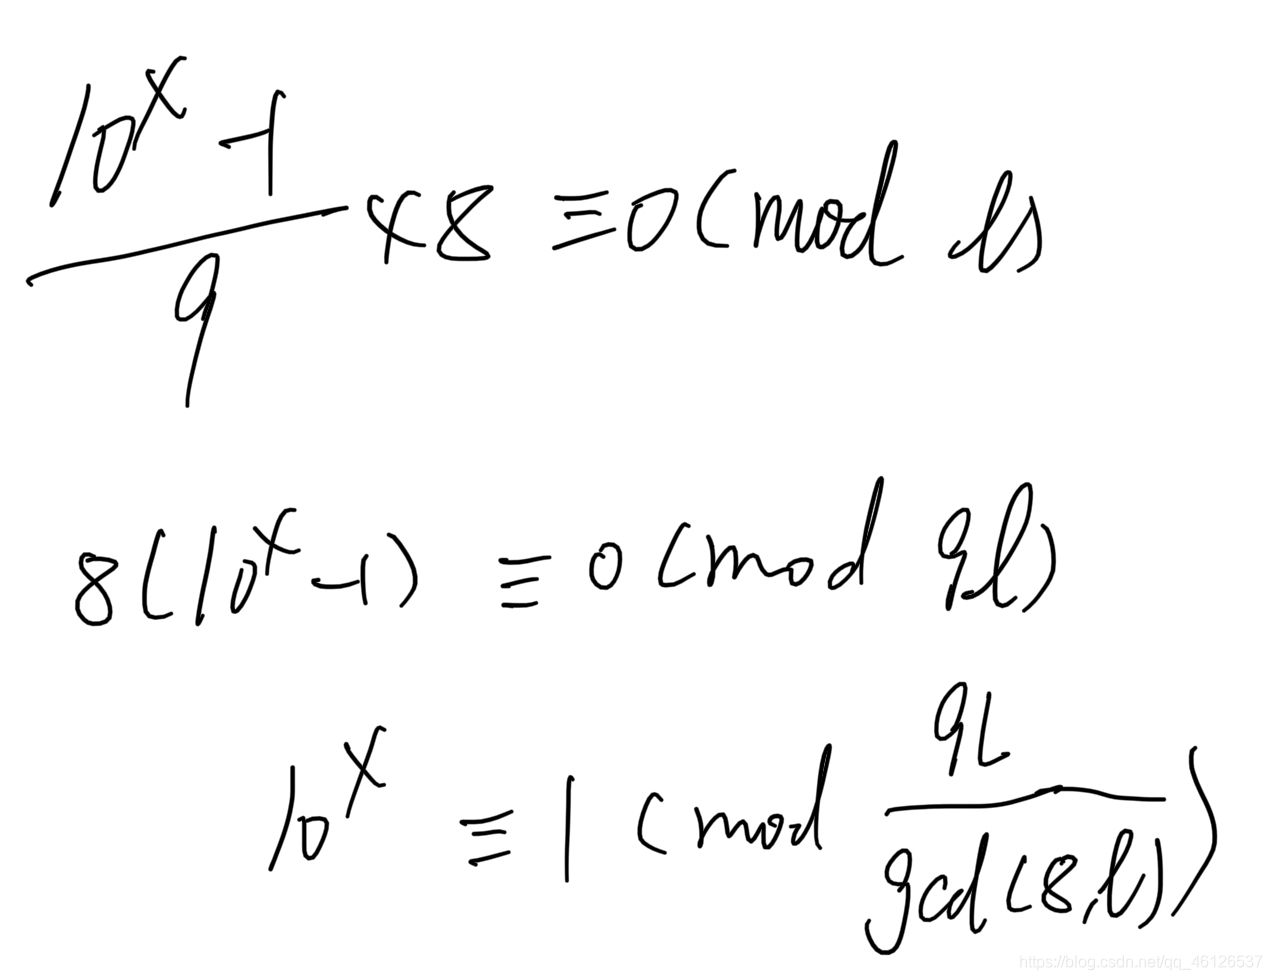 \frac{10^x-1}{9} × 8 ≡ 0 (mod l)
8(10^x-1) ≡ 0 (mod 9l)
10^x ≡ 1 (mod \frac{9L}{gcd(8,l)})
https://blog.csdn.net/qq_46126537